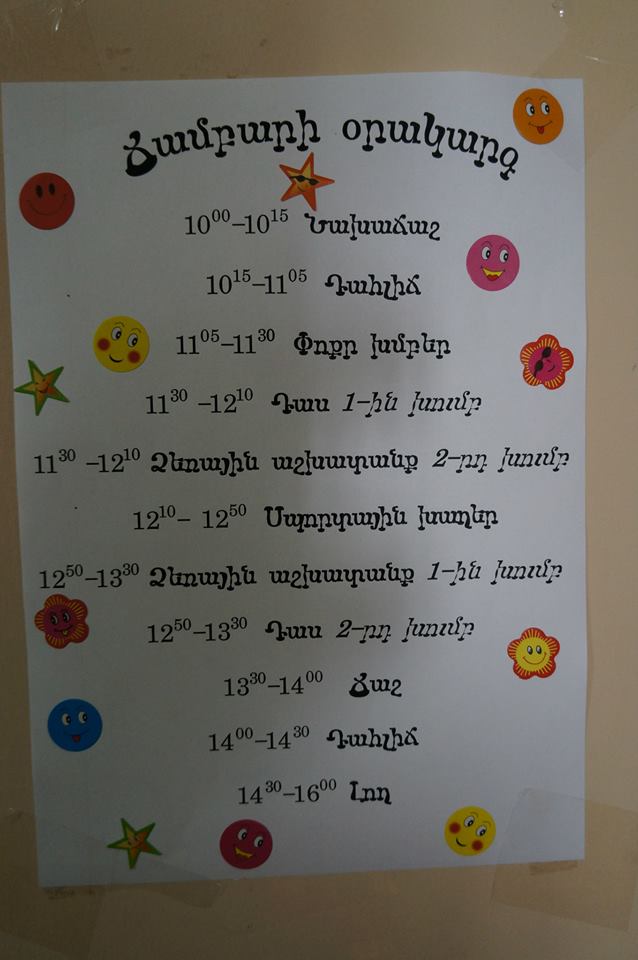 Ճամբարի օրակարգ
10⁰⁰–10¹⁵ Նախաճաշ
10¹⁵–11⁰⁵ Դահլիճ
11⁰⁵–11³⁰ Փոքր խմբեր
11³⁰ –12¹⁰ Դաս 1-ին խումբ
11³⁰ –12¹⁰ Ձեռային աշխատանք 2-րդ խումբ
12¹⁰– 12⁵⁰ Սպորտային խաղեր
12⁵⁰–13³⁰ Ձեռային աշխատանք 1-ին խումբ
12⁵⁰–13³⁰ Դաս 2-րդ խումբ
13³⁰–14⁰⁰ Ճաշ
14⁰⁰–14³⁰ Դահլիճ
14³⁰–16⁰⁰ Լող